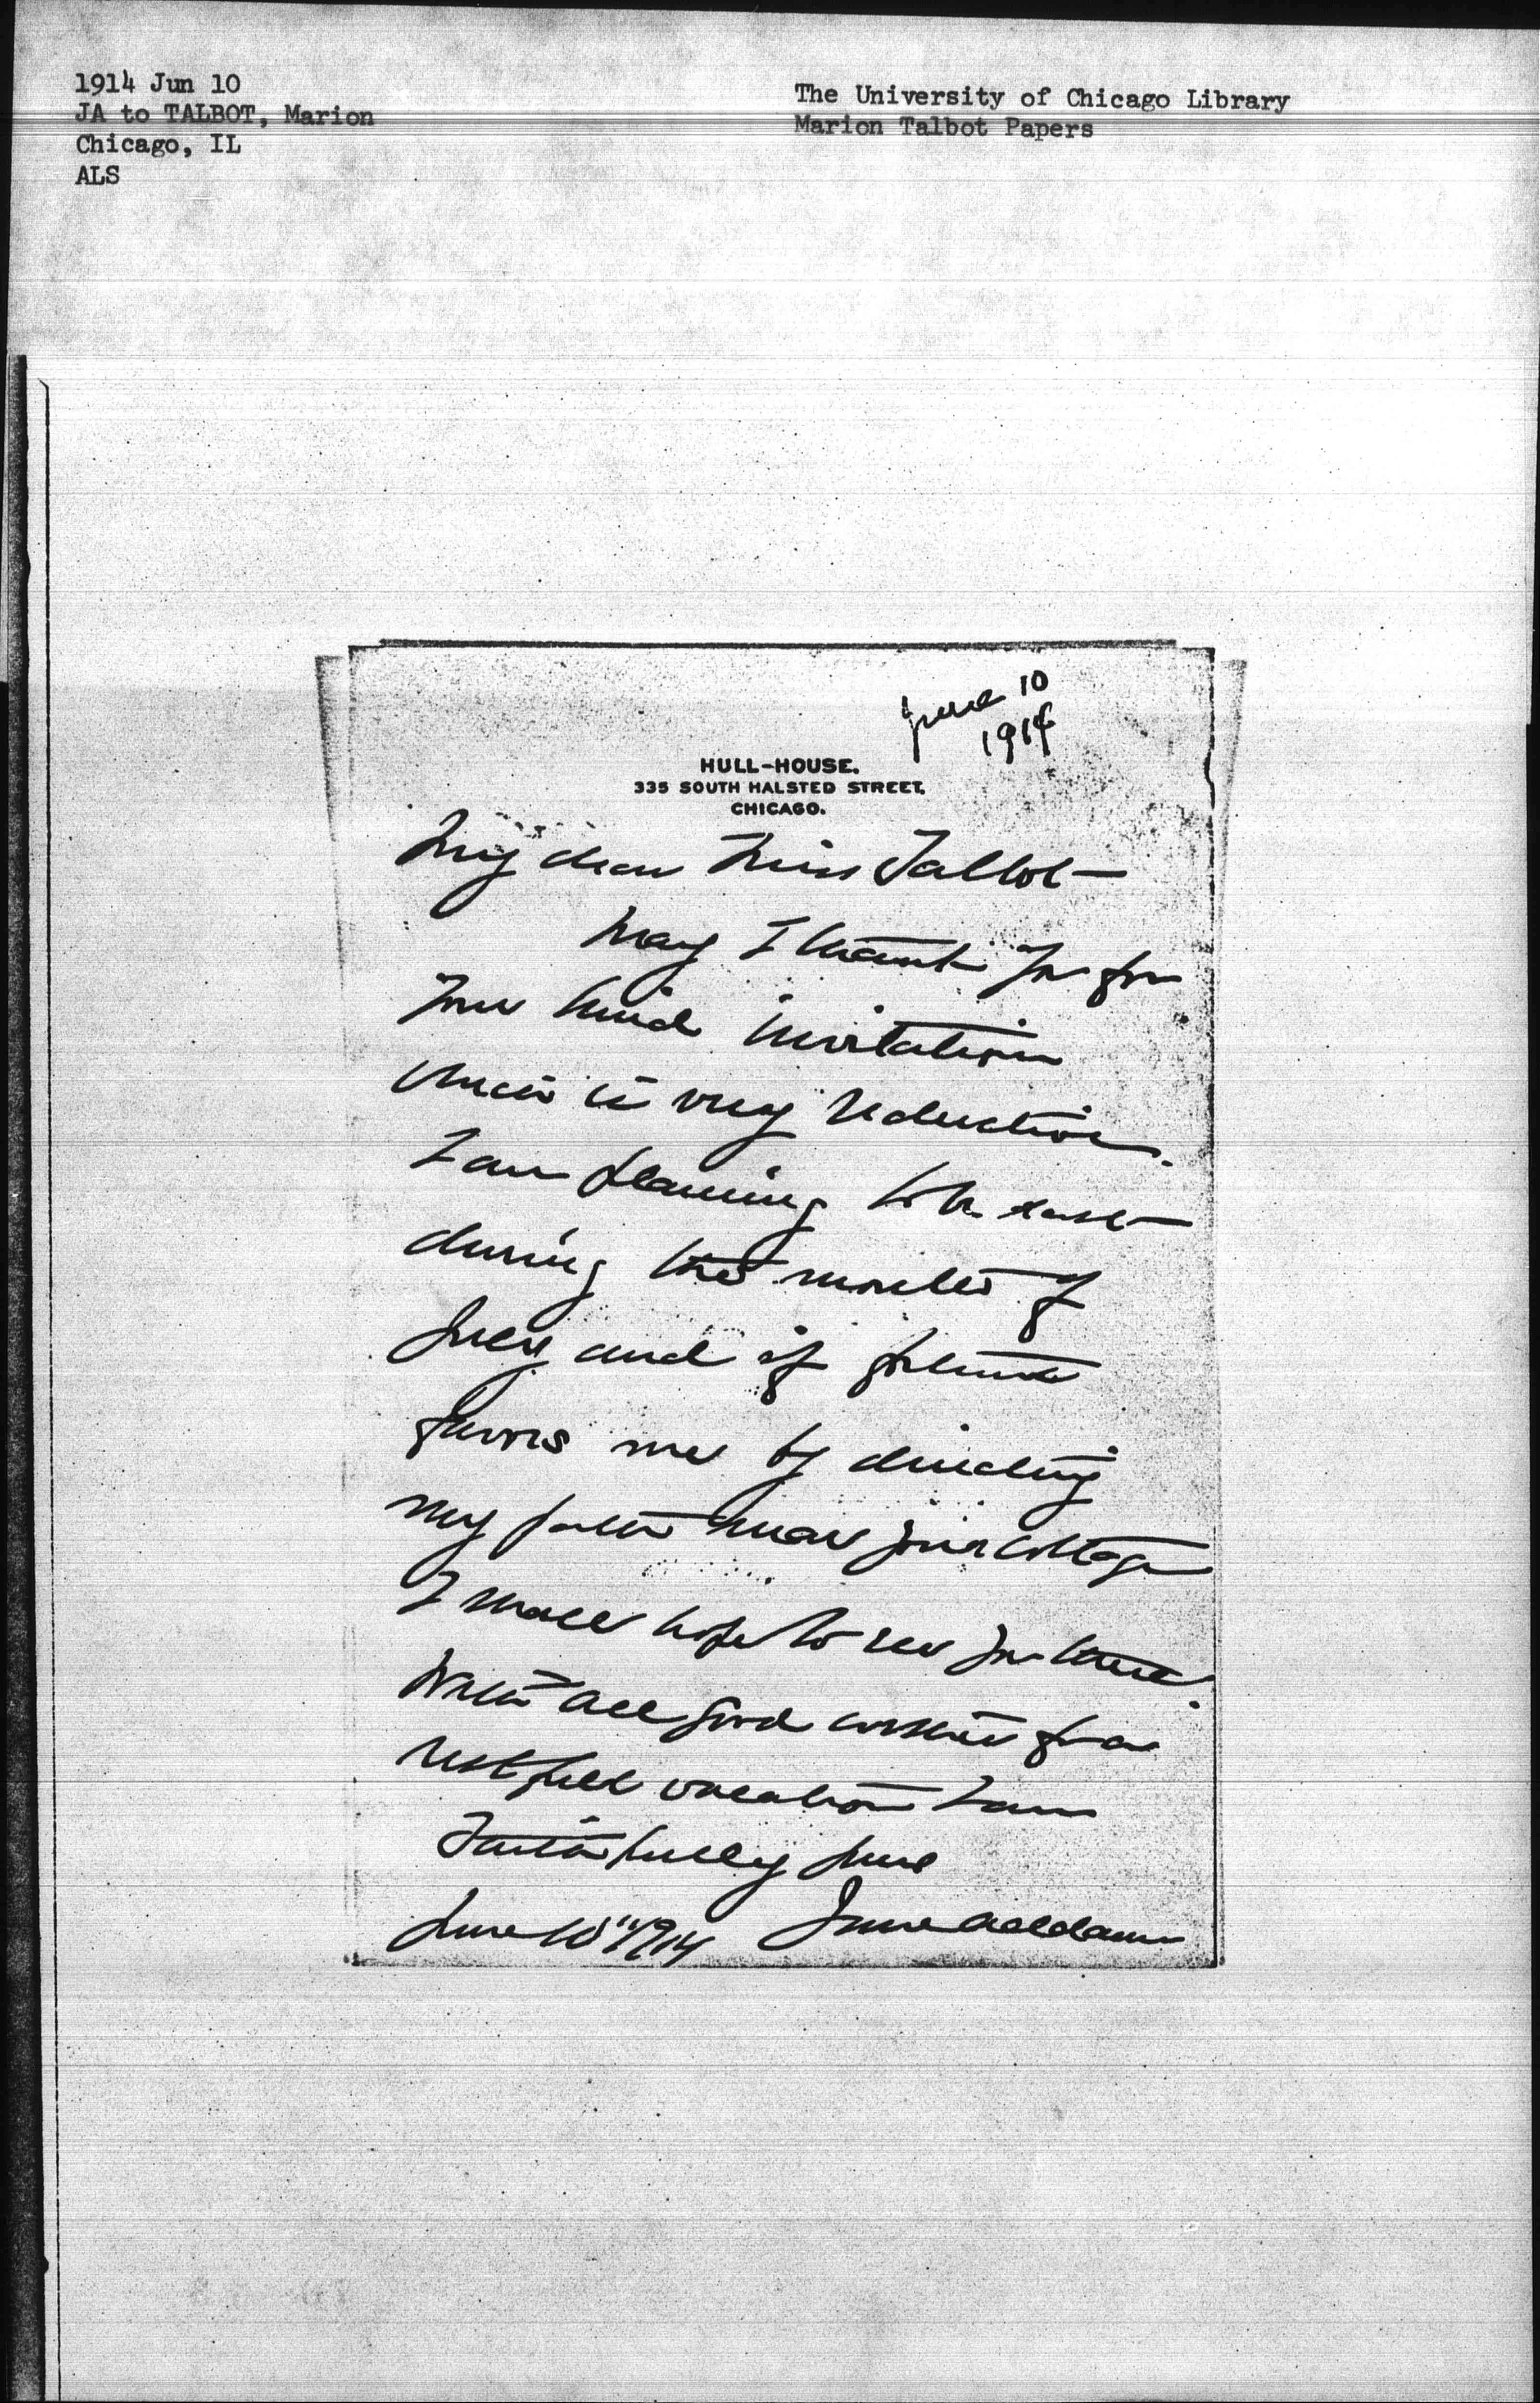 1914 Jun 10
JA to TALBOT, Marion
Chicago, IL
ALS
The University of Chicago Library
Marion Talbot Papers
June 10
1914
HULL-HOUSE.
335 SOUTH HALSTED STREET,
CHICAGO.
My dear Miss Talbot—
May I thank you for
your kind invitation
which is very seductive.
I am planning to be east
during the month of
July and if fortune
favors me by directing
my path near your cottage
I shall hope to see you there.
With all good wishes for a
restfull vacation I am
Faithfully yours
June 10" 1914 Jane Addams